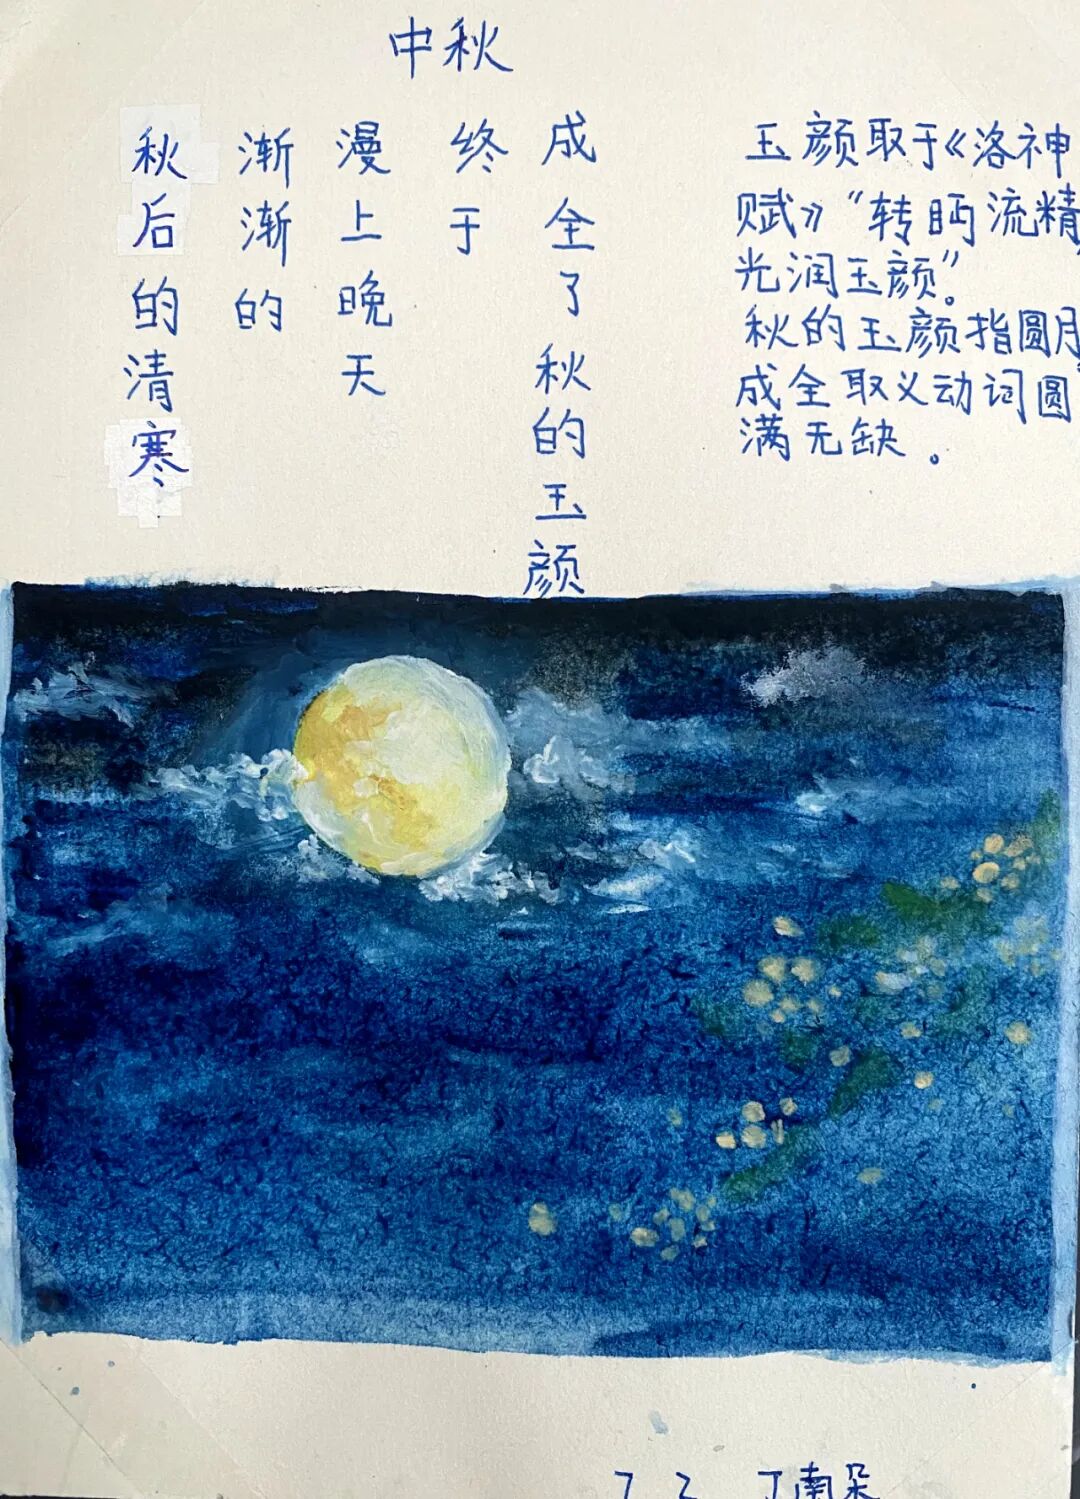 中秋
秋后的清寒
渐渐的
漫上晚天
终于
成全了秋的玉颜
玉颜取于《洛神
赋》“转眄流精，
光润玉颜”。
秋的玉颜指圆月
成全取义动词圆
满无缺。
7 2 丁南朵